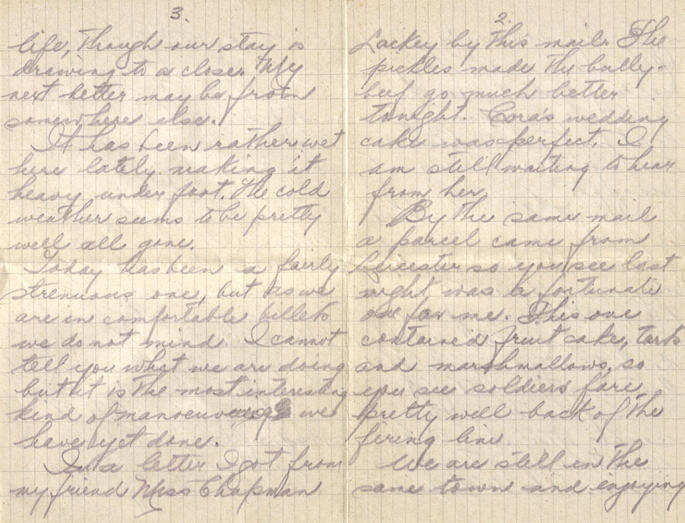 2.
Lackey by this mail. The
pickles made the bully-
beef go much better
tonight. Cora's wedding
cake was perfect. I
am still waiting to hear
from her.
By the same mail
a parcel came from
Leicester so you see last
night was a fortunate
one for me. This one
contained fruit cake, tarts
and marshmallows, so
you see soldiers fare
pretty well back of the
firing line.
We are still in the
same town and enjoying
3.
life, though our stay is
drawing to a close. My
next letter may be from
somewhere else.
It has been rather wet
here lately making it
heavy under foot. The cold
weather seems to be pretty
well all gone.
Today has been a fairly
strenuous one, but as we
are in comfortable billets
we do not mind. I cannot
tell you what we are doing
but it is the most interesting
kind of manoeuvering we
have yet done.
In a letter I got from
my friend Miss Chapman